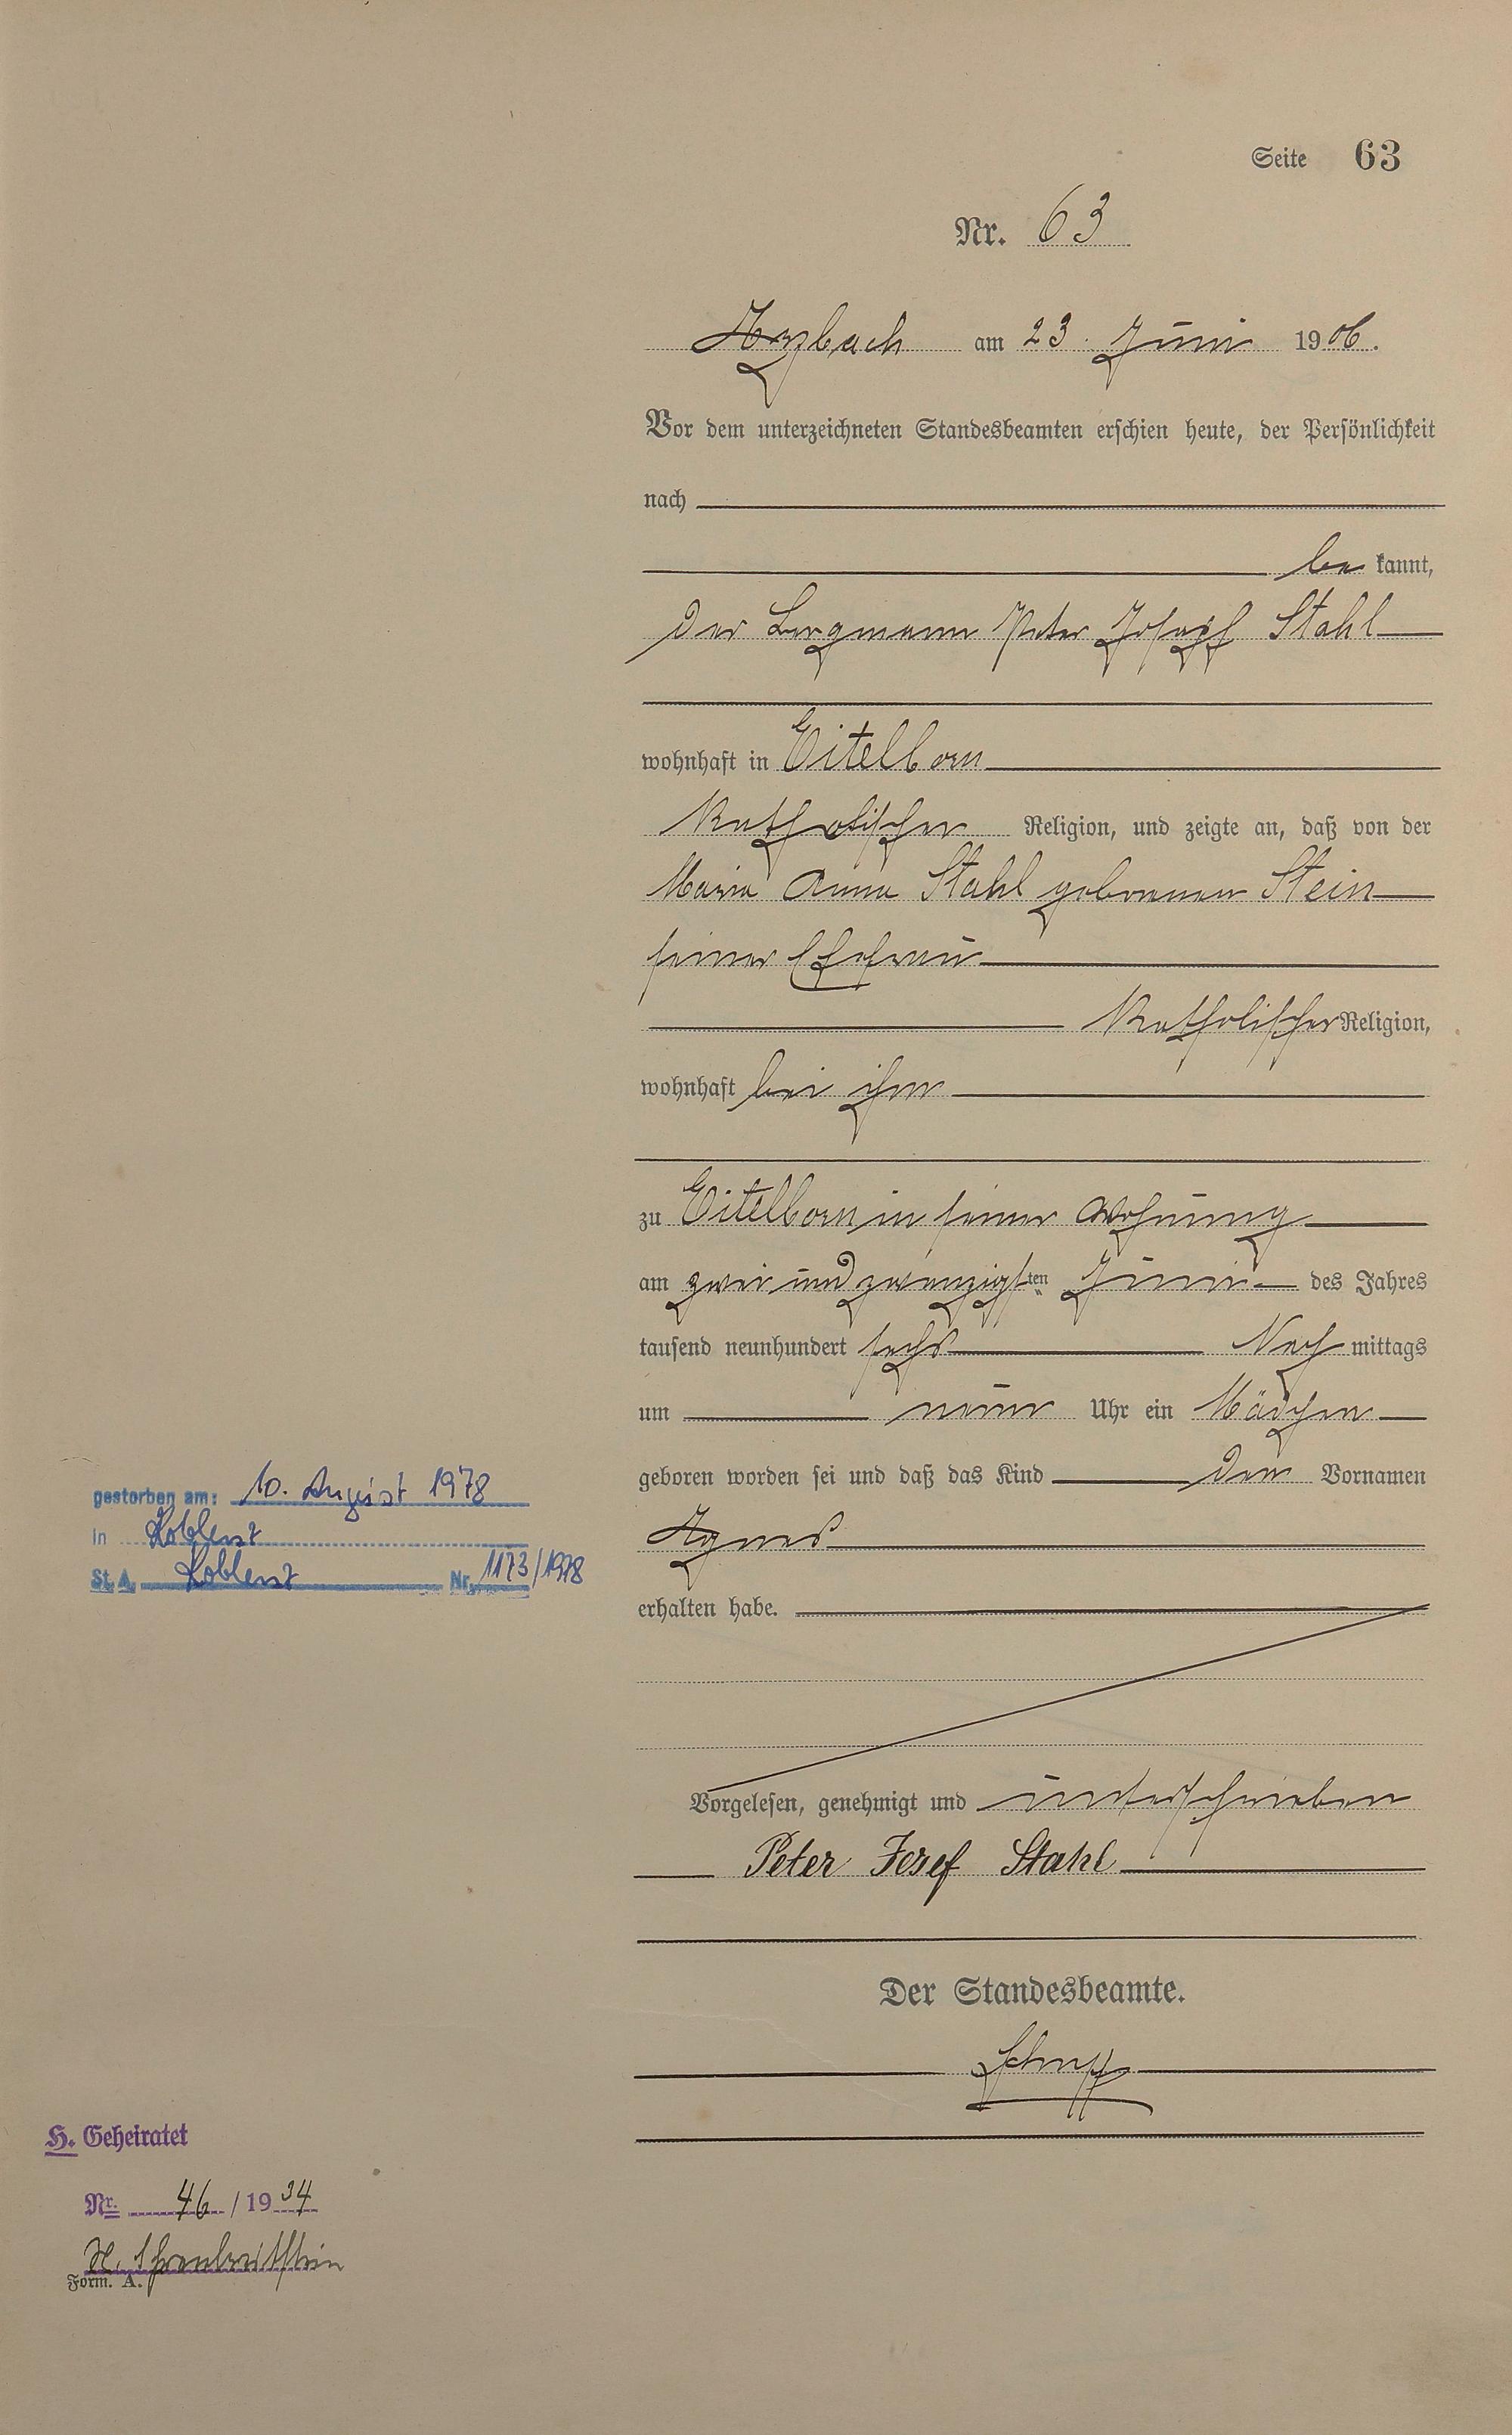 Seite 63
Nr. 63
Arzbach am 23. Juni 1906.
Vor dem unterzeichneten Standesbeamten erschien heute, der Persönlichkeit
nach
be kannt,
der Bergmann Peter Josepf Stahl
wohnhaft in Eitelborn
katholischer Religion, und zeigte an, daß von der
Maria Anna Stahl geborenen Stein
seiner Ehefrau
katholischer Religion,
wohnhaft bei ihm
zu Eitelborn in seiner Wohnung
am zwei und zwanzigsten Juni des Jahres
tausend neunhundert sechs Nach mittags
um neun Uhr ein Mädchen
geboren worden sei und daß das Kind den Vornamen
Agnes
erhalten habe.
Vorgelesen, genehmigt und unterschrieben
Peter Josef Stahl
Der Standesbeamte.
gestorben am: 10. August 1978
in Koblenz
St. A. Koblenz Nr. 1173/1978
H. Geheiratet
Nr. 46 / 1934
Ehrenbreitstein
Form. A.